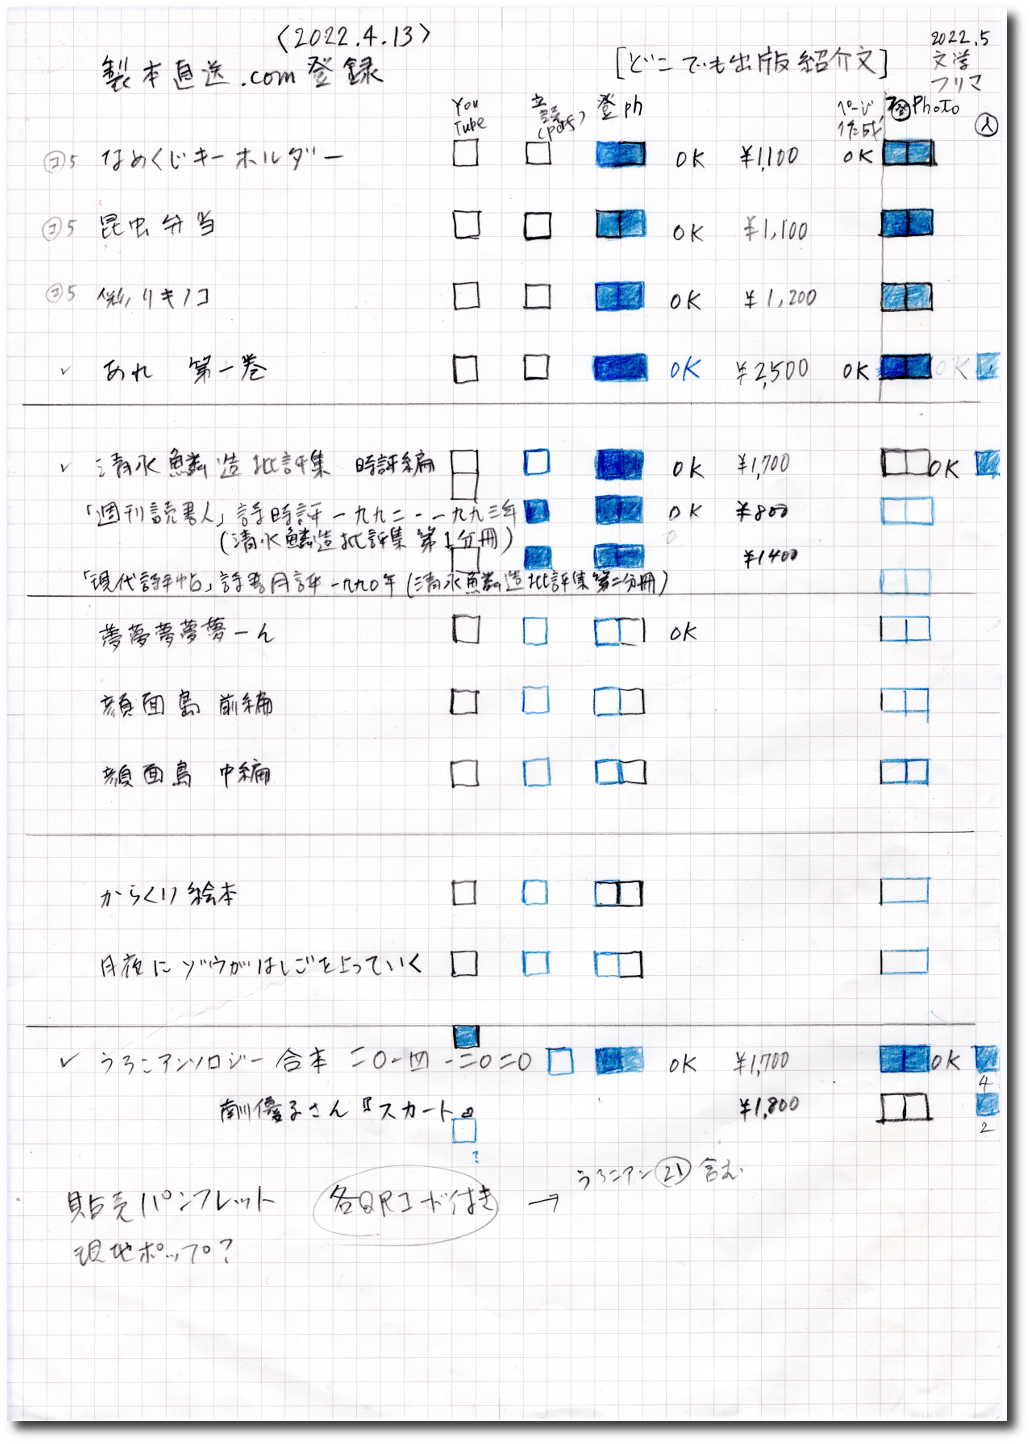 〈2022.4.13〉
製本直送.com登録
[どこでも出版紹介文]
2022.5
文学
フリマ
You
Tube
立読
(pdf)
登ph
ページ
作成
Photo
入
5 なめくじキーホルダー OK ¥1,100 OK
5 昆虫弁当 OK ¥1,100
5 リキノコ OK ¥1,200
✓ あれ 第一巻 OK ¥2,500 OK OK
✓ 清水鱗造批評集 時評編 OK ¥1,700 OK
「週刊読書人」詩時評一九九二-一九九三年 OK ¥800
(清水鱗造批評集 第1分冊)
¥1400
「現代詩手帖」詩書月評一九九〇年(清水鱗造批評集第二分冊)
夢夢夢夢夢ーん OK
顔面島 前編
顔面島 中編
からくり絵本
月夜にゾウがはしごを上っていく
✓ うろこアンソロジー 合本 二〇一四-二〇二〇 OK ¥1,700 OK
4
南川優子さん『スカート』 ¥1,800
2
?
販売パンフレット 各QRコード付き → うろこアン21 含む
現地ポップ?